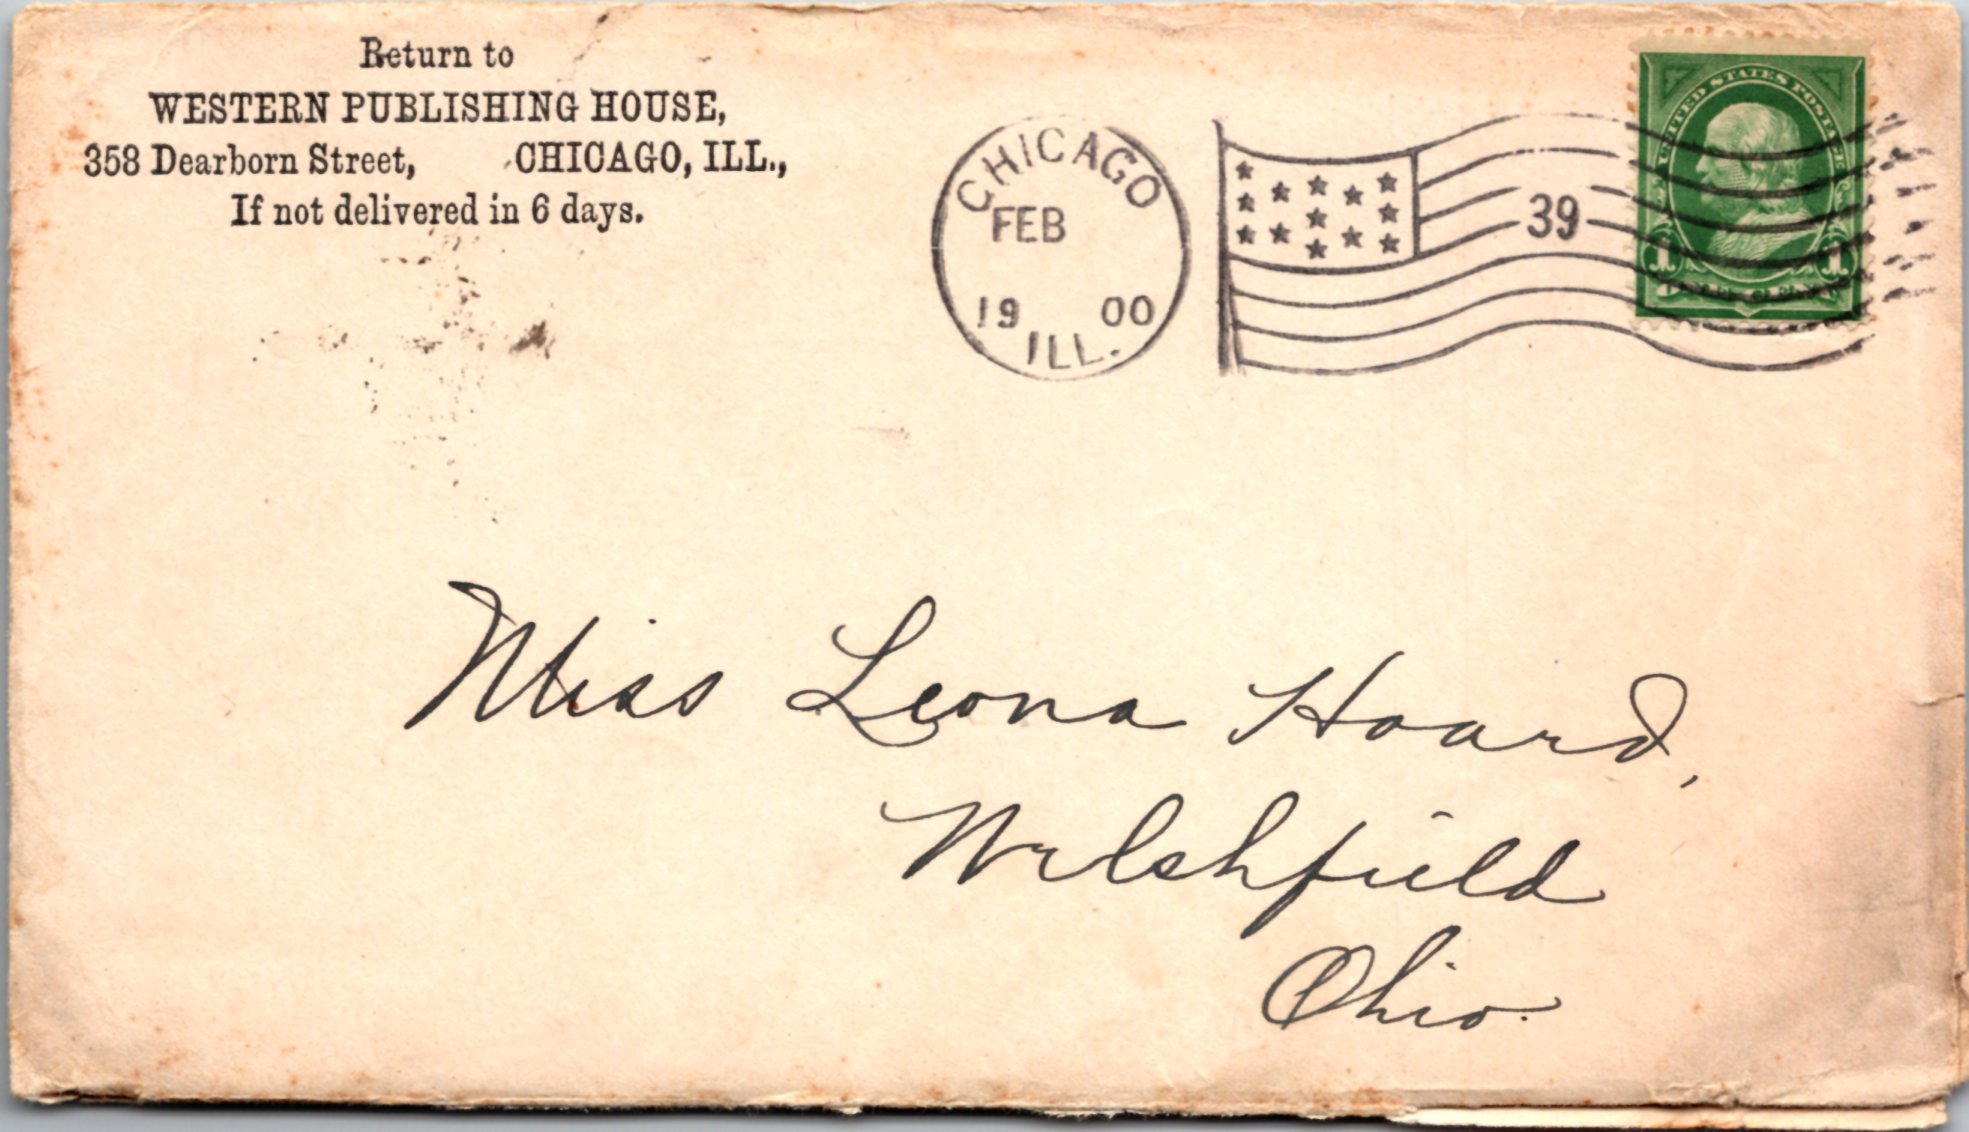 Return to
WESTERN PUBLISHING HOUSE,
358 Dearborn Street, CHICAGO, ILL.,
If not delivered in 6 days.
CHICAGO
FEB
19 00
ILL.
39
UNITED STATES POSTAGE
1 1
Miss Leona Hoard,
Welshfield
Ohio.